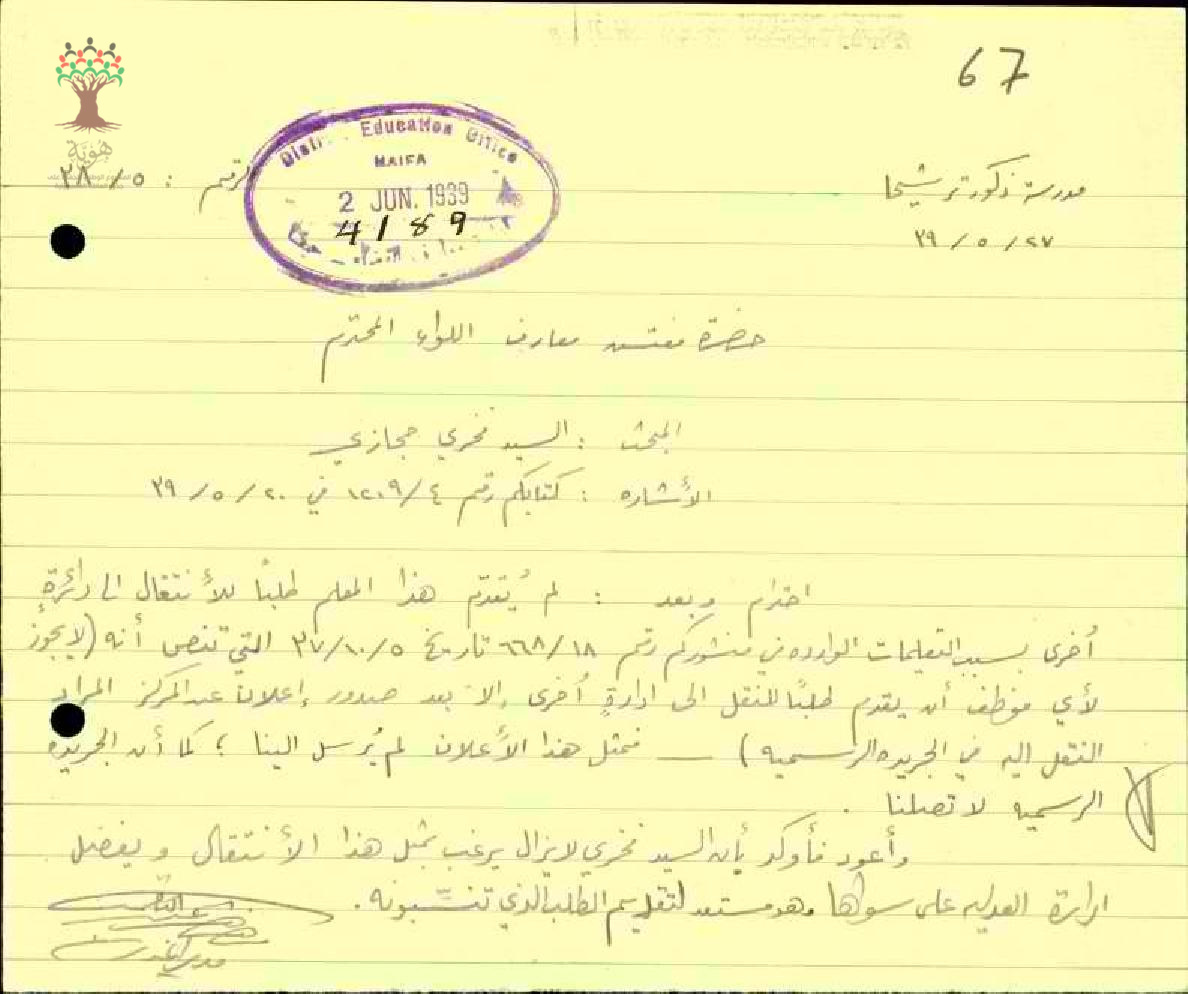 67
هوية
District Education Office
HAIFA
2 JUN. 1939
4189
الرقم : ٢٨/٥
مدرسة ذكور ترشيحا
٢٧ / ٥ / ٣٩
حضرة مفتش معارف اللواء المحترم
المبحث : السيد فخري حجازي
الأشاره : كتابكم رقم ١٢٠٩/٤ في ٢٠ / ٥ / ٣٩
احترام وبعد : لم يُقدّم هذا المعلم طلبًا للأنتقال الى دائرةٍ
أخرى بسبب التعليمات الوارده في منشوركم رقم ٦٦٨/١٨ تاريخ ٣٧/١٠/٥ التي تنص أنه (لا يجوز
لأي موظف أن يقدم طلبًا للنقل الى ادارةٍ أخرى إلا بعد صدور إعلان عن المركز المراد
النقل اليه في الجريده الرسميه ) — فمثل هذا الأعلان لم يُرسل الينا ؛ كما أن الجريده
الرسميه لا تصلنا .
وأعود فأوكد بأن السيد فخري لا يزال يرغب بمثل هذا الأنتقال ويفضل
ادارة العدليه على سواها وهو مستعد لتقديم الطلب الذي تنسّبونه .